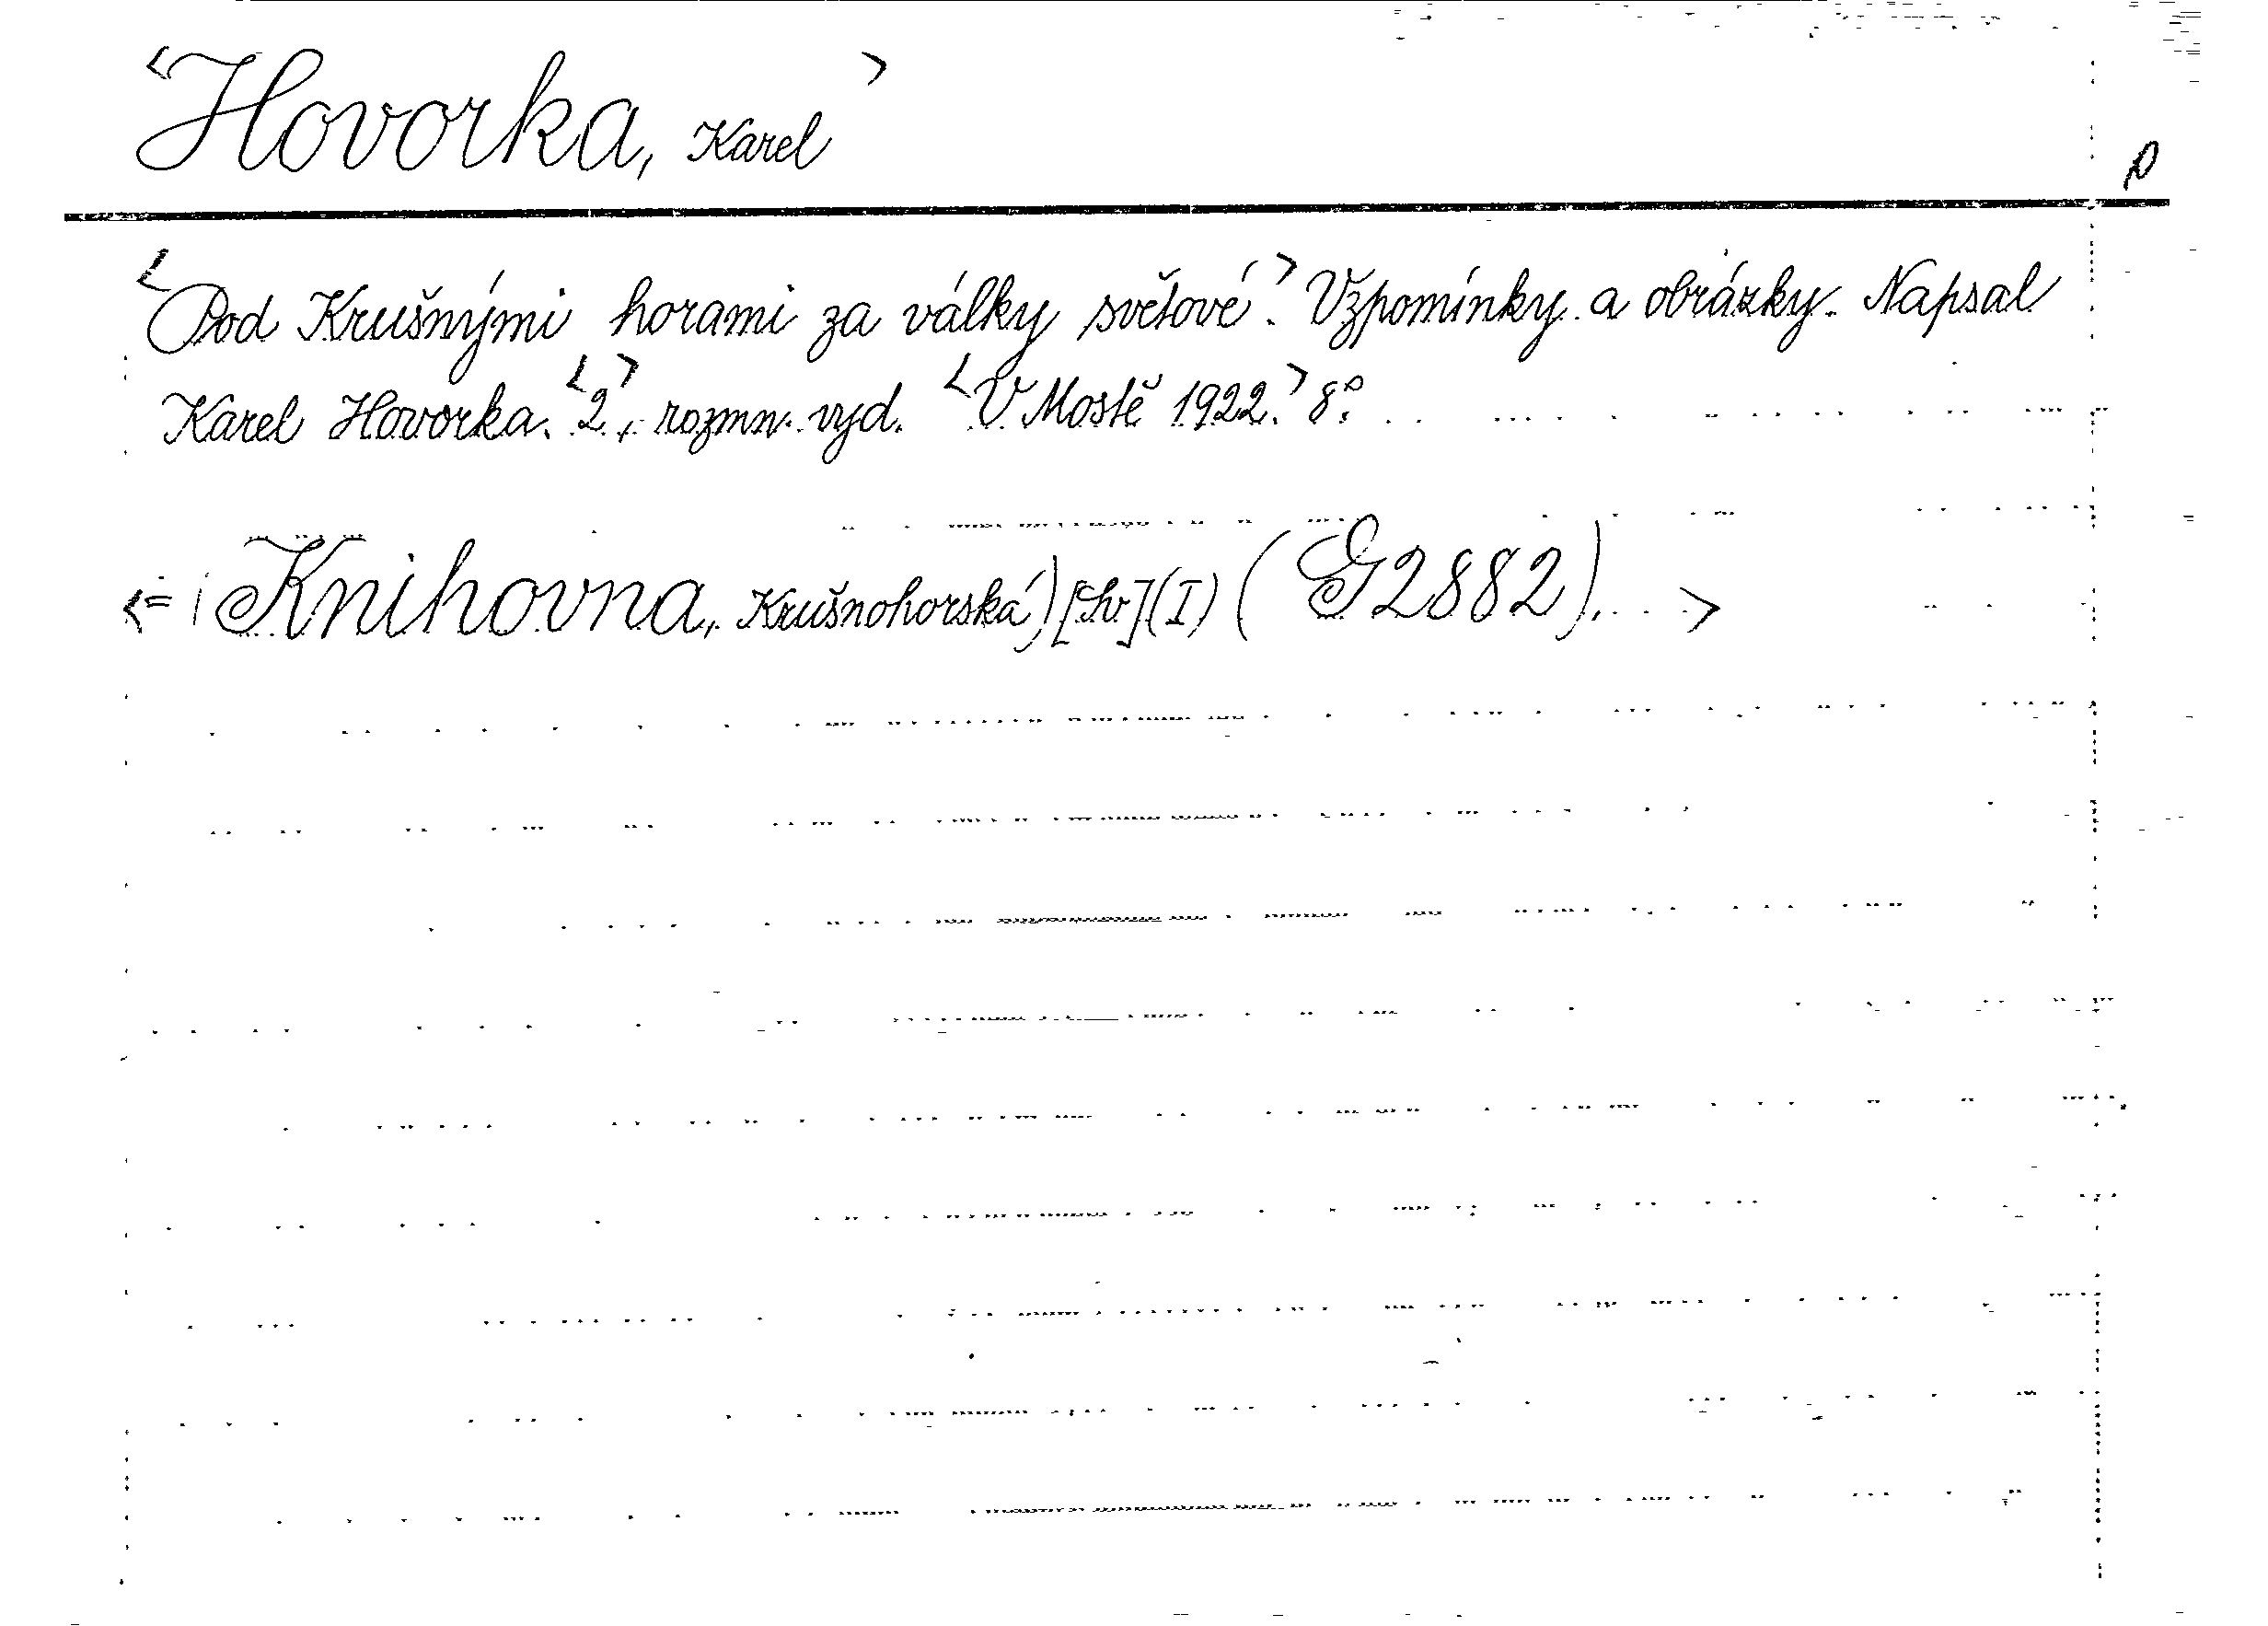 <Hovorka, Karel>
p
<Pod Krušnými horami za války světové.> Vzpomínky a obrázky. Napsal
Karel Hovorka. <2.> rozmn. vyd. <V Mostě 1922.> 8°.
<= (Knihovna, Krušnohorská) [Sv] (I) (G 2882). >